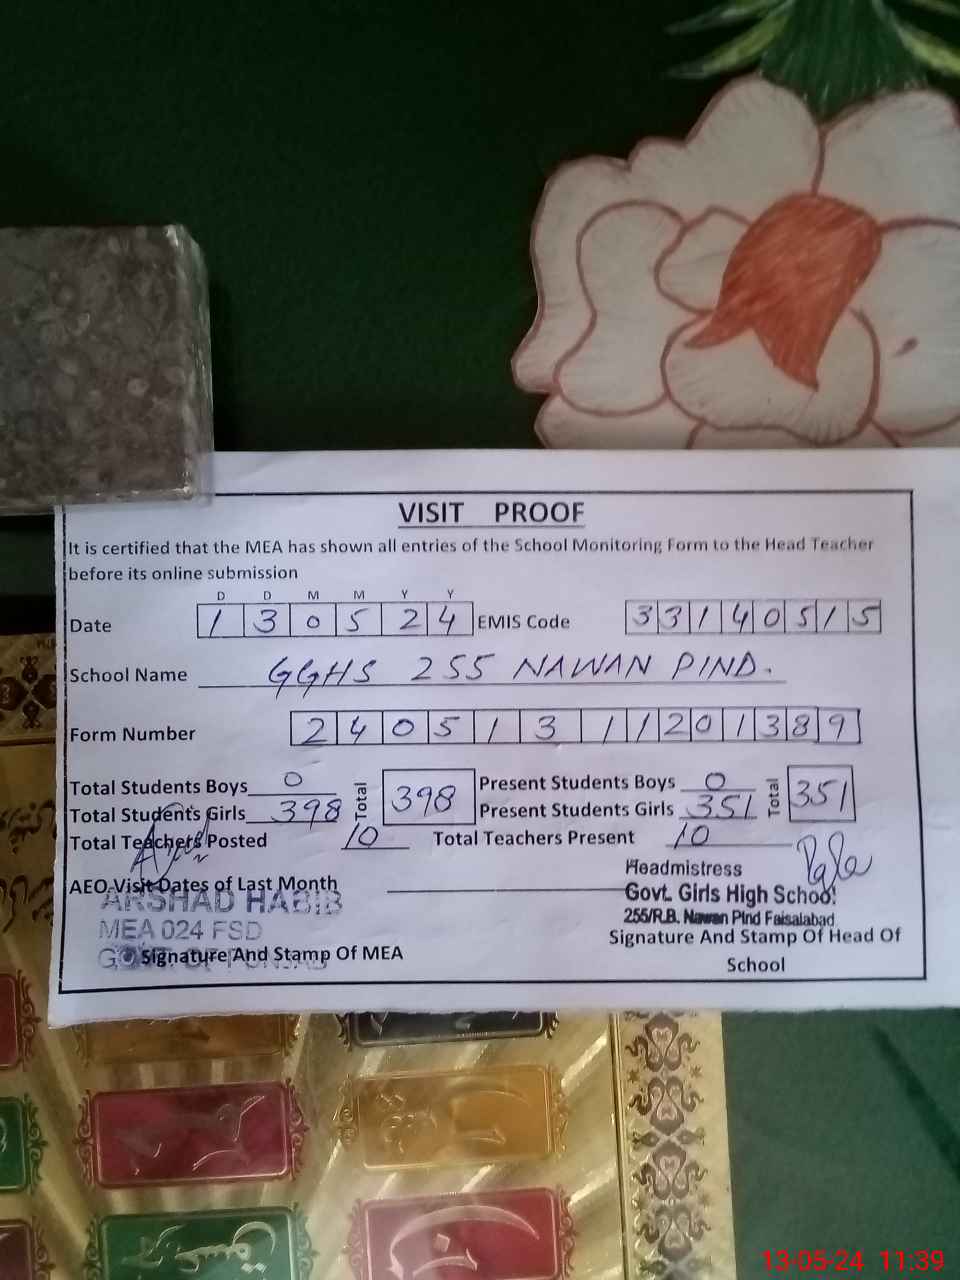 VISIT PROOF
It is certified that the MEA has shown all entries of the School Monitoring Form to the Head Teacher
before its online submission
D D M M Y Y
Date 1 3 0 5 2 4 EMIS Code 3 3 1 4 0 5 1 5
School Name GGHS 255 NAWAN PIND.
Form Number 2 4 0 5 1 3 1 1 2 0 1 3 8 9
Total Students Boys 0 Total 398 Present Students Boys 0 Total 351
Total Students Girls 398 Present Students Girls 351
Total Teachers Posted 10 Total Teachers Present 10
Headmistress
AEO Visit Dates of Last Month
Govt. Girls High School
ARSHAD HABIB
255/R.B. Nawan Pind Faisalabad
MEA 024 FSD
Signature And Stamp Of Head Of
School
GOVT OF PUNJAB
Signature And Stamp Of MEA
13-05-24 11:39